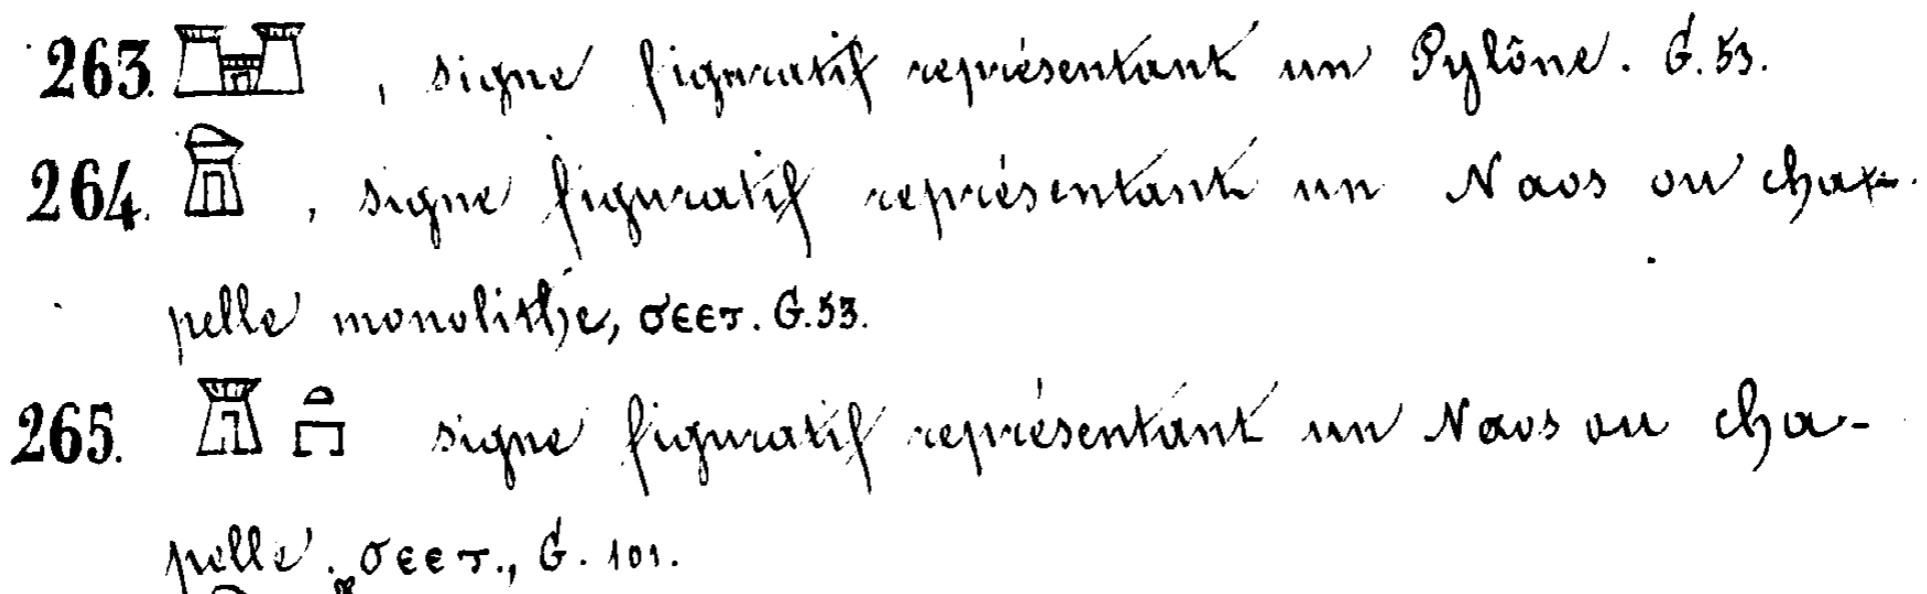 263. , signe figuratif représentant un Pylône. G. 53.
264. , signe figuratif représentant un Naos ou cha-
pelle monolithe, ϭⲉⲉⲧ. G. 53.
265. signe figuratif représentant un Naos ou cha-
pelle. ϭⲉⲉⲧ., G. 101.